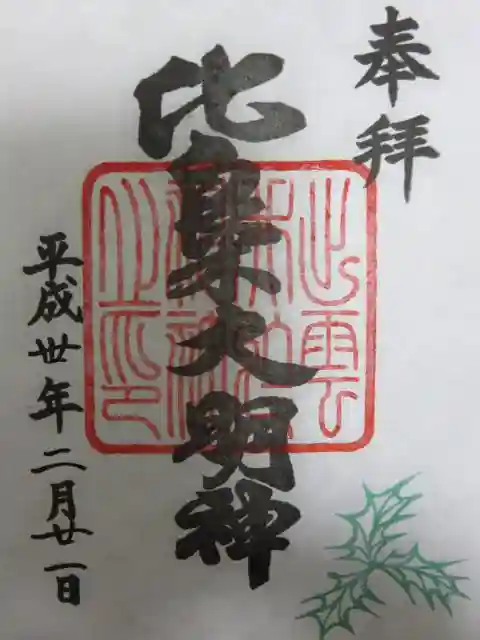 奉拝
比良木大明神
平成丗年二月廿一日